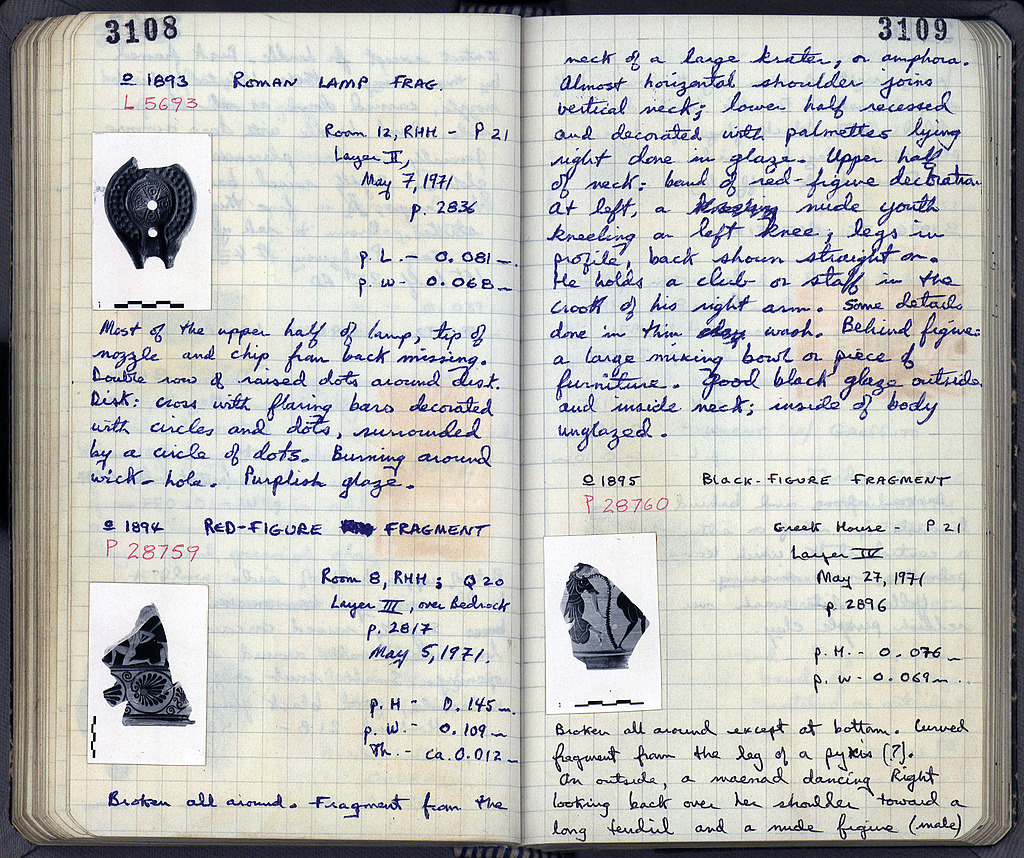 3108
o 1893 ROMAN LAMP FRAG.
L 5693
Room 12, RHH - P 21
Layer II,
May 7, 1971
p. 2836
p. L. - 0.081 m.
p. W - 0.068 m
Most of the upper half of lamp, tip of
nozzle and chip from back missing.
Double row of raised dots around disk.
Disk: cross with flaring bars decorated
with circles and dots, surrounded
by a circle of dots. Burning around
wick-hole. Purplish glaze.
o 1894 RED-FIGURE FRAGMENT
P 28759
Room 8, RHH; Q 20
Layer III, over Bedrock
p. 2817
May 5, 1971.
p. H - 0.145 m.
p. W. - 0.109 m
Th. - ca. 0.012 m
Broken all around. Fragment from the
3109
neck of a large krater, or amphora.
Almost horizontal shoulder joins
vertical neck; lower half recessed
and decorated with palmettes lying
right done in glaze. Upper half
of neck: band of red-figure decoration
At left, a nude youth
kneeling on left knee; legs in
profile, back shown straight on.
He holds a club or staff in the
crook of his right arm. Some details
done in thin wash. Behind figure:
a large mixing bowl or piece of
furniture. Good black glaze outside
and inside neck; inside of body
unglazed.
o 1895 BLACK-FIGURE FRAGMENT
P 28760
Greek House - P 21
Layer IV
May 27, 1971
p. 2896
p. H. - 0.076 m
p. W - 0.069 m.
Broken all around except at bottom. Curved
fragment from the leg of a pyxis (?).
On outside, a maenad dancing Right
looking back over her shoulder toward a
long tendril and a nude figure (male)